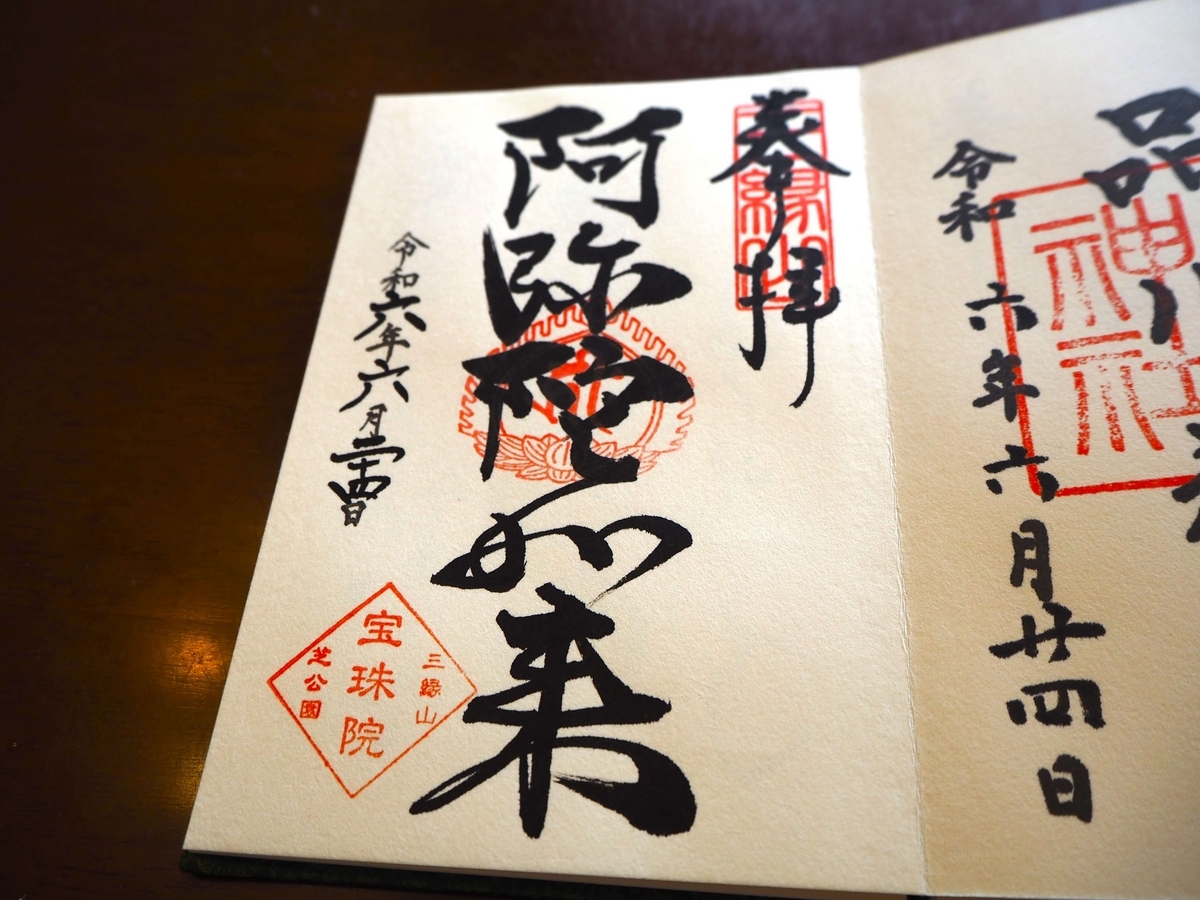 奉拝
三縁山
阿弥陀如来
令和六年六月二十四日
三縁山
宝珠院
芝公園
品川
神社
令和六年六月廿四日